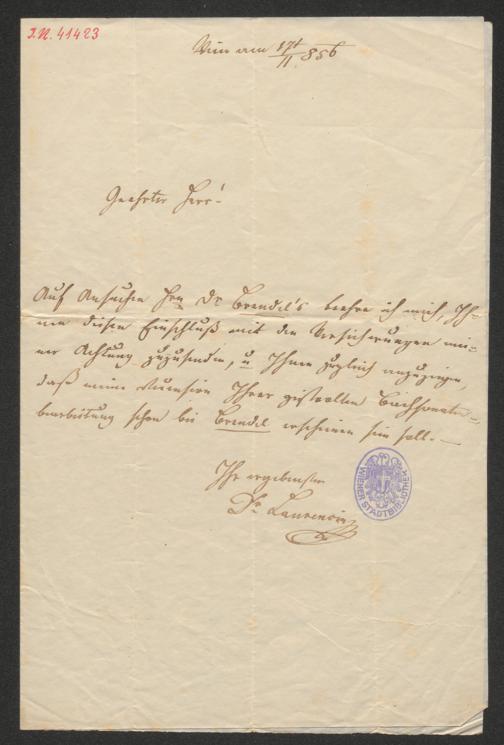 I.N. 41423
Wien am 17t/11 856
Geehrter Herr!
Auf Ansuchen Hrn Dr Brendel's beehre ich mich, Ih-
nen diesen Einschluß mit den Versicherungen mei-
ner Achtung zuzusenden, u Ihnen zugleich anzuzeigen,
daß meine Recension Ihrer geistvollen Bachsonaten-
bearbeitung schon bei Brendel erschienen sein soll. —
Ihr ergebenster
Dr Laurencin
WIENER STADTBIBLIOTHEK